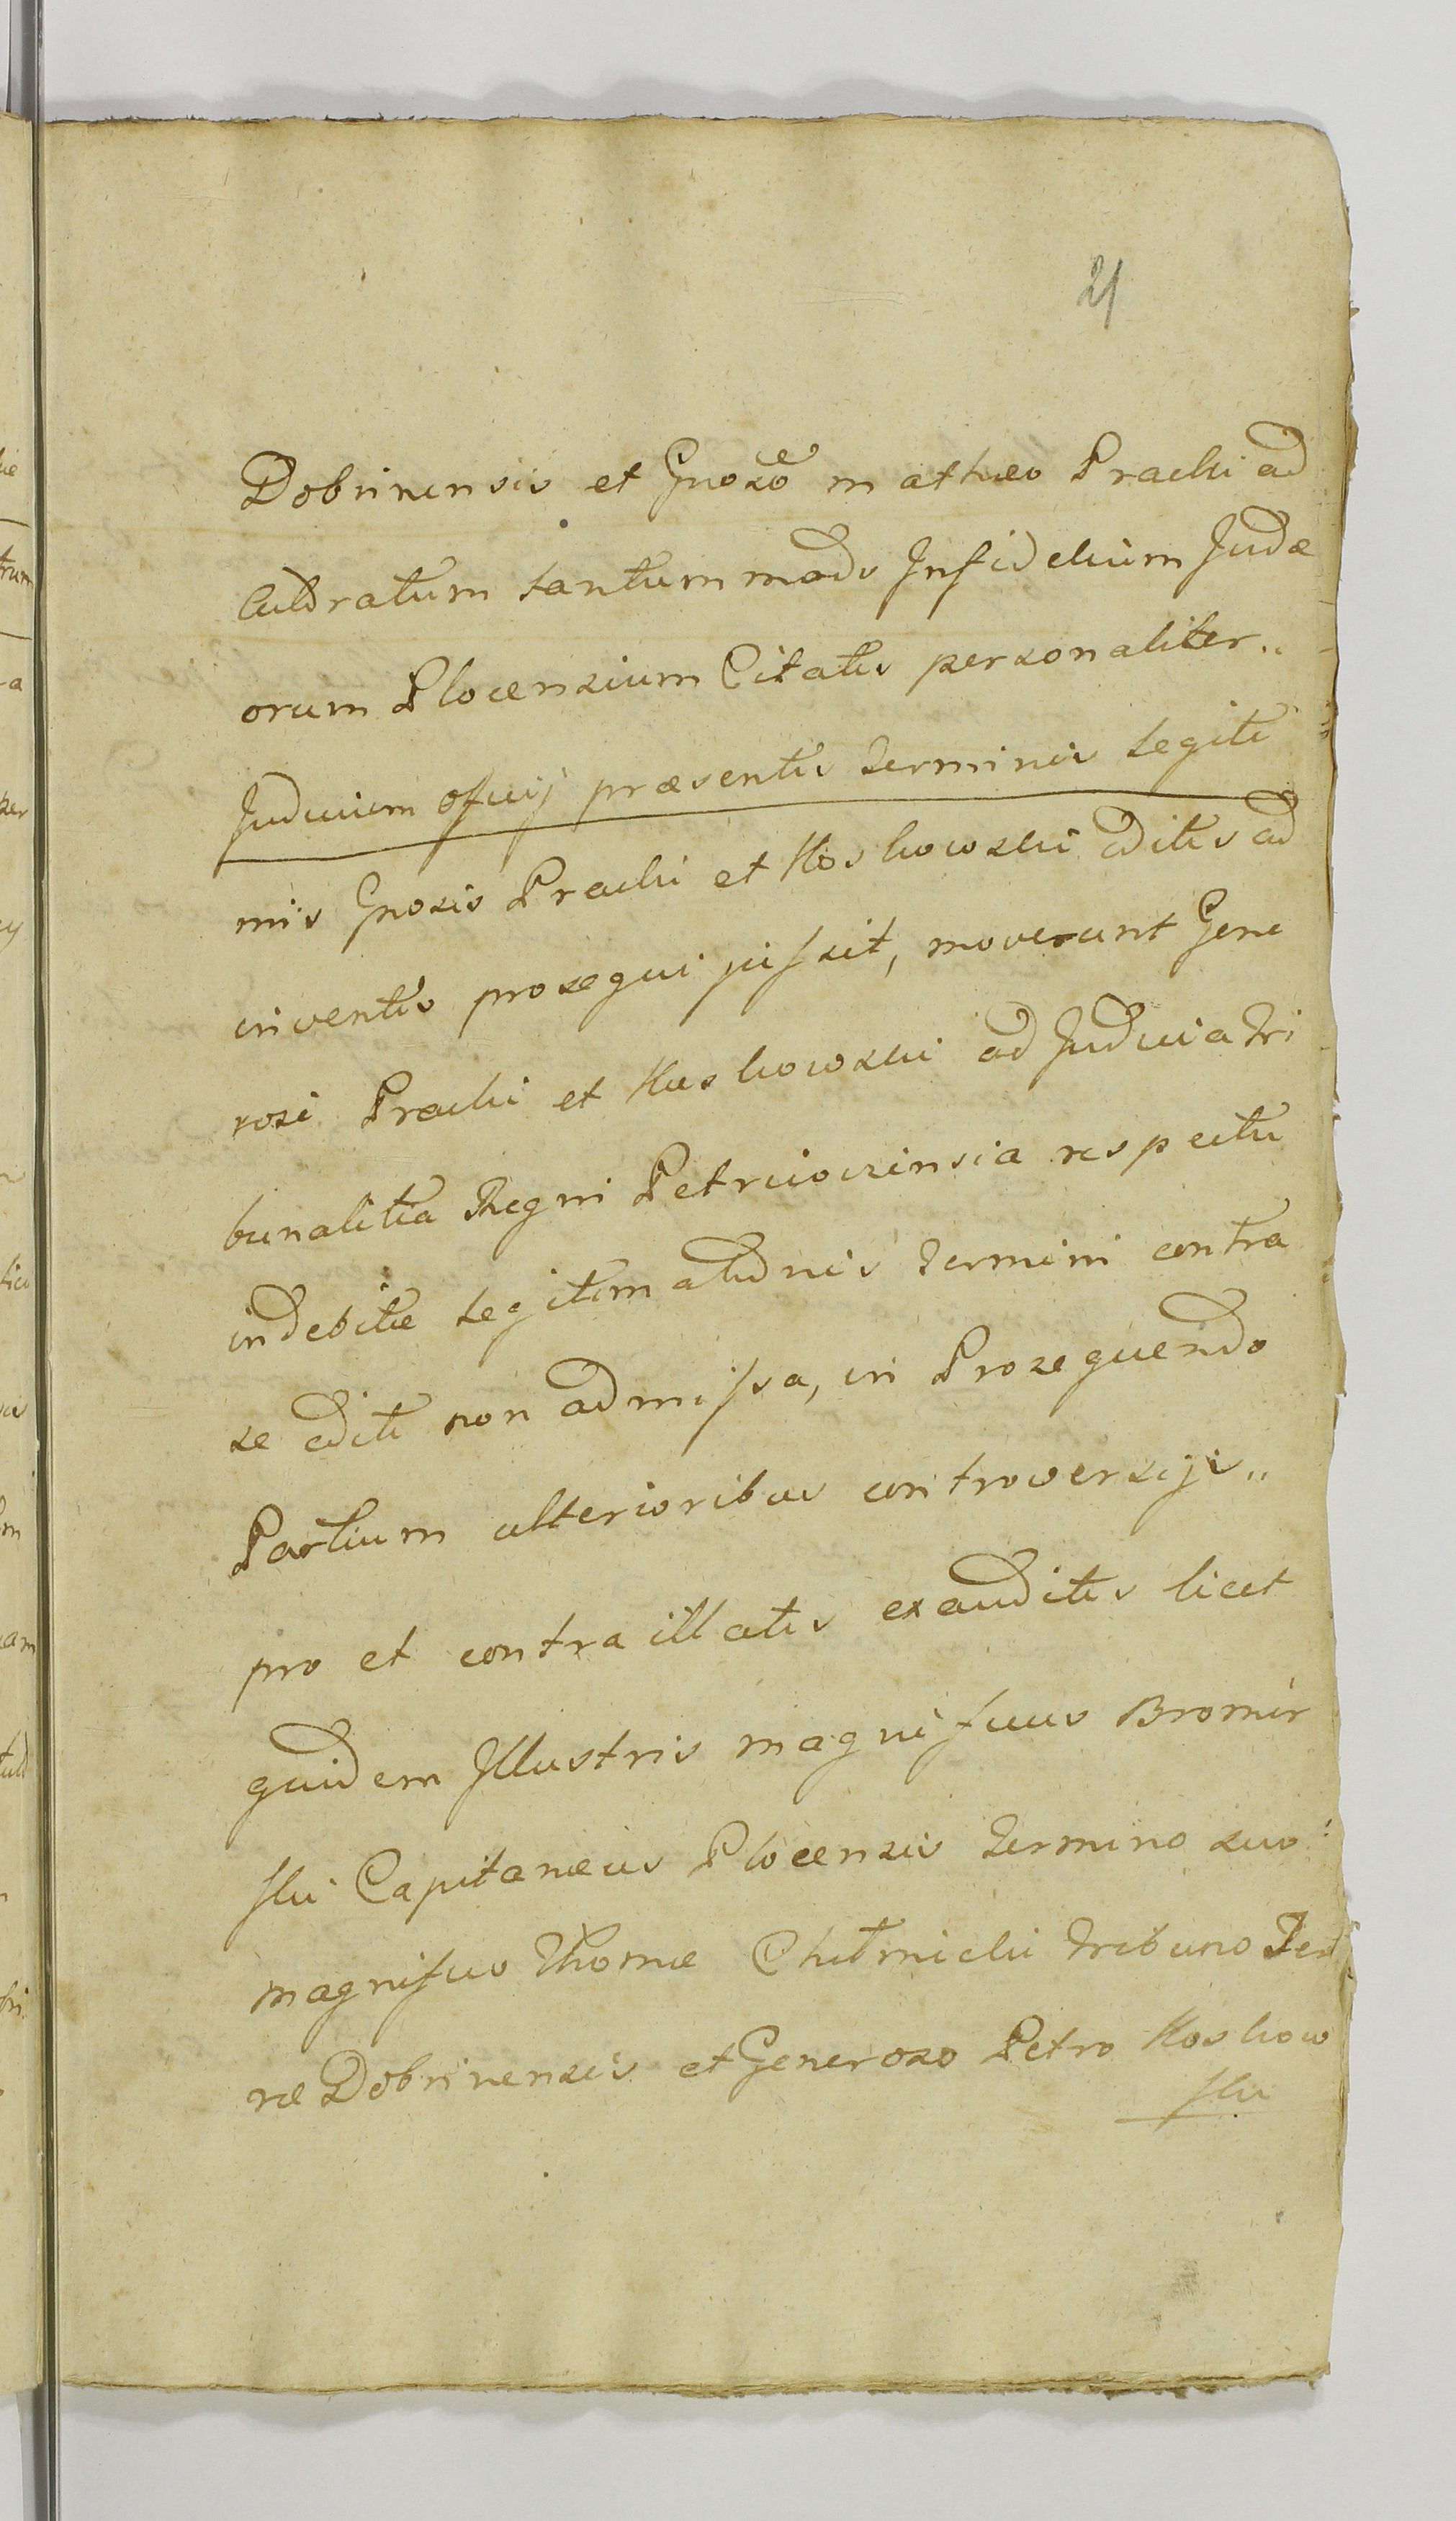 21
Dobrinensis et Gnoso Mathæo Pracki ad
tantummodo Infidelium Judæ
orum Plocensium Citatis personaliter„
Judicium præsentis terminis legiti
mis Gnosis Pracki et Koskowski editis ad
inventis prosequi jussit, moverunt Gene
rosi Pracki et Koskowski ad Judicia Tri
bunalitia Regni Petricoviensia respectu
indebitæ legitimationis termini contra
se editi non admissa, in Prosequendo
Partium ulterioribus controversijs„
pro et contra illatis exauditis licet
quidem Illustris magnificus Bromir
ski Capitaneus Plocensis termino suo
magnifico Thomæ Chełmicki tribuno Ter
ræ Dobrinensis et Generoso Petro Koskow
ski